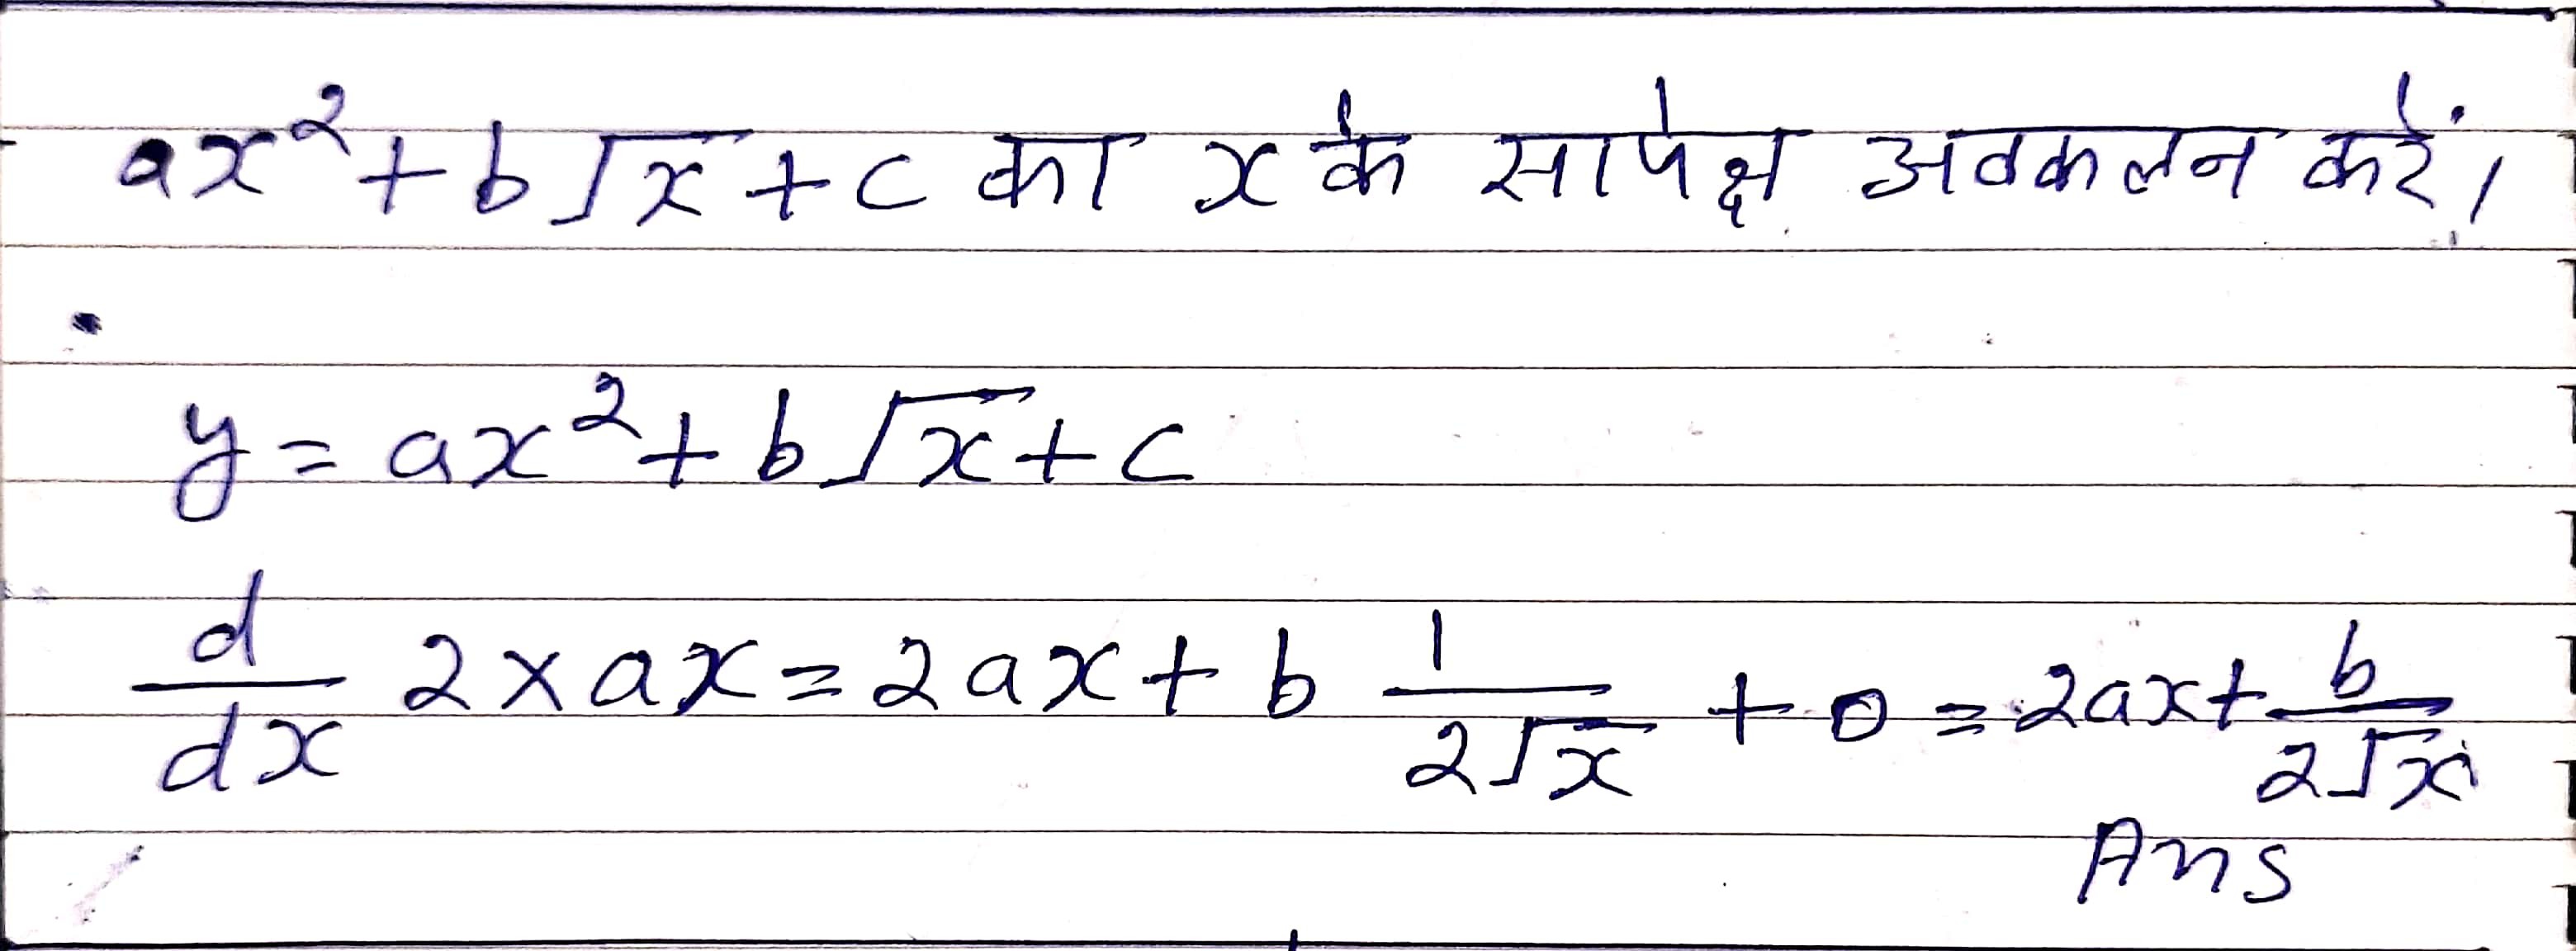 ax² + b√x + c का x के सापेक्ष अवकलन करें।
y = ax² + b√x + c
d/dx 2 × ax = 2ax + b 1/2√x + 0 = 2ax + b/2√x
Ans